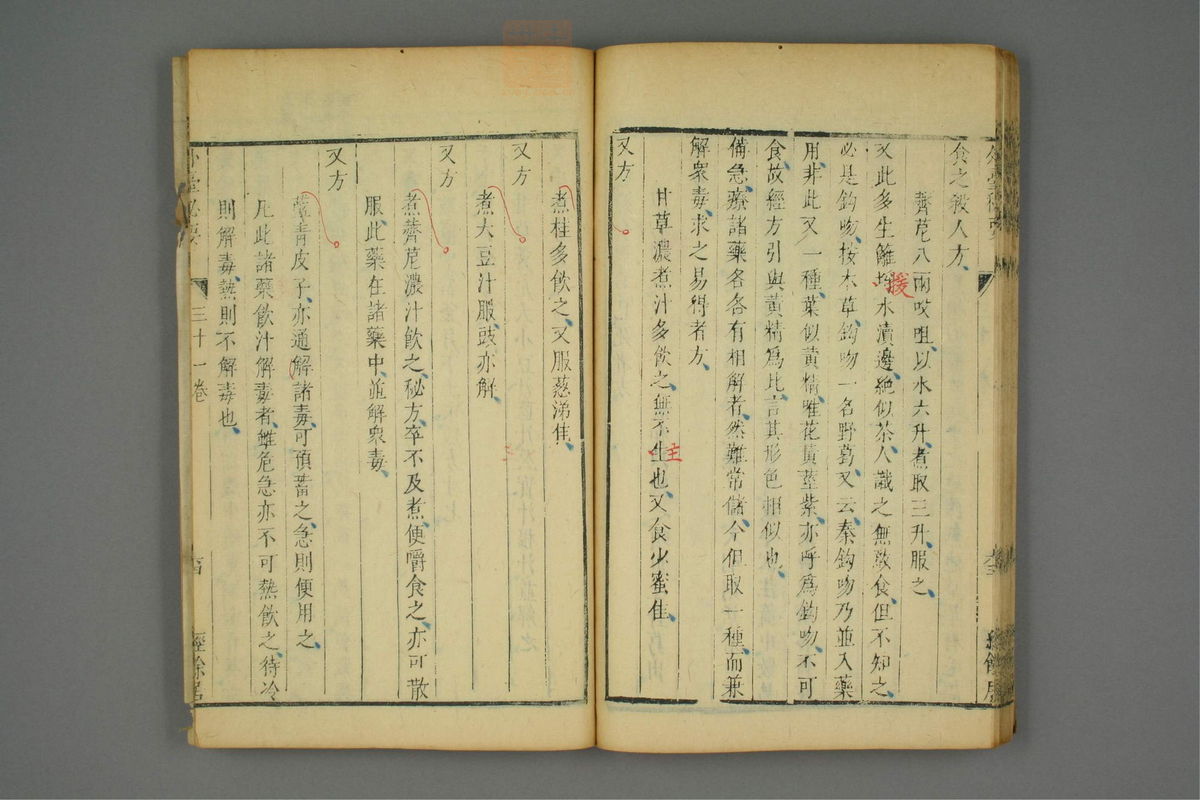 食之殺人方
薺苨八兩㕮咀以水六升煮取三升服之
又此多生籬垣水瀆邊絶似茶人識之無敢食但不知之
必是鈎吻按本草鈎吻一名野葛又云秦鈎吻乃並入藥
用非此又一種葉似黄精唯花黄莖紫亦呼爲鈎吻不可
食故經方引與黄精爲比言其形色相似也
備急療諸藥各各有相解者然難常儲今但取一種而兼
解衆毒求之易得者方
甘草濃煮汁多飲之無不生也又食少蜜佳
主
又方
煮桂多飲之又服葱涕佳
又方
煮大豆汁服豉亦解
又方
煮薺苨濃汁飲之秘方卒不及煮便嚼食之亦可散
服此藥在諸藥中並解衆毒
又方
藍青皮子亦通解諸毒可預畜之急則便用之
凡此諸藥飲汁解毒者雖危急亦不可熱飲之待冷
則解毒熱則不解毒也
三十一卷
經餘居